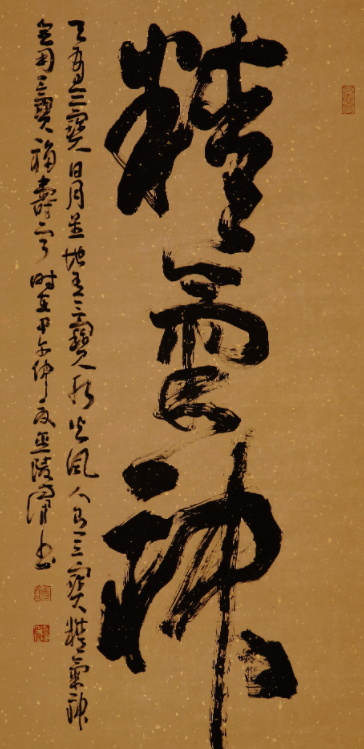 精氣神
天有三寶日月星地有三寶水火風人有三寶精氣神
用三寶福壽寧時在甲午仲夏陵書